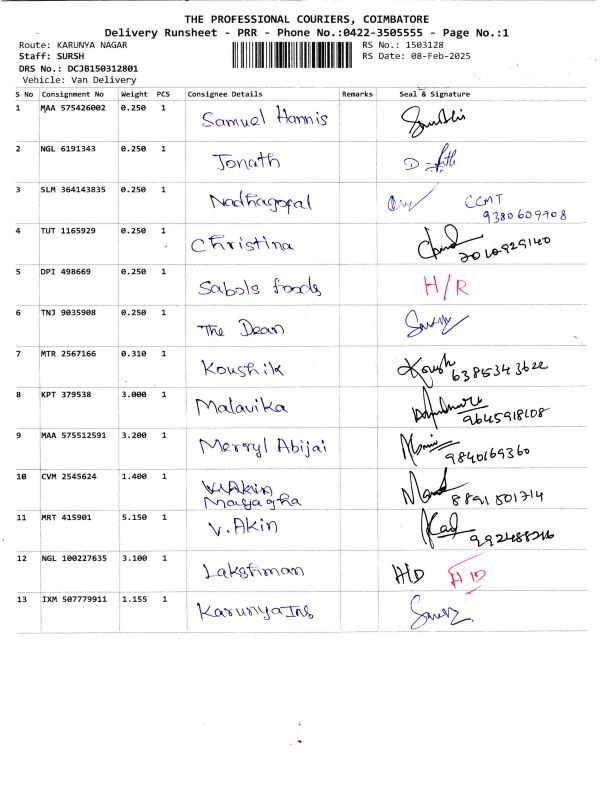 THE PROFESSIONAL COURIERS, COIMBATORE
Delivery Runsheet - PRR - Phone No.:0422-3505555 - Page No.:1
Route: KARUNYA NAGAR RS No.: 1503128
Staff: SURSH RS Date: 08-Feb-2025
DRS No.: DCJB150312801
Vehicle: Van Delivery
S No Consignment No Weight PCS Consignee Details Remarks Seal & Signature
1 MAA 575426002 0.250 1 Samuel Hannis
2 NGL 6191343 0.250 1 Jonath
3 SLM 364143835 0.250 1 Nadhagopal CCMT
9380609908
4 TUT 1165929 0.250 1 Christina
5 DPI 498669 0.250 1 Sabols foods H/R
6 TNJ 9035908 0.250 1 The Dean
7 MTR 2567166 0.310 1 Koushik Koush
8 KPT 379538 3.000 1 Malavika
9645918108
9 MAA 575512591 3.200 1 Merryl Abijai
9840169360
10 CVM 2545624 1.400 1 V.Akin
8891501714
11 MRT 415901 5.150 1 V. Akin
12 NGL 100227635 3.100 1 Lakshman H/D H/D
13 IXM 507779911 1.155 1 Karunya Ins